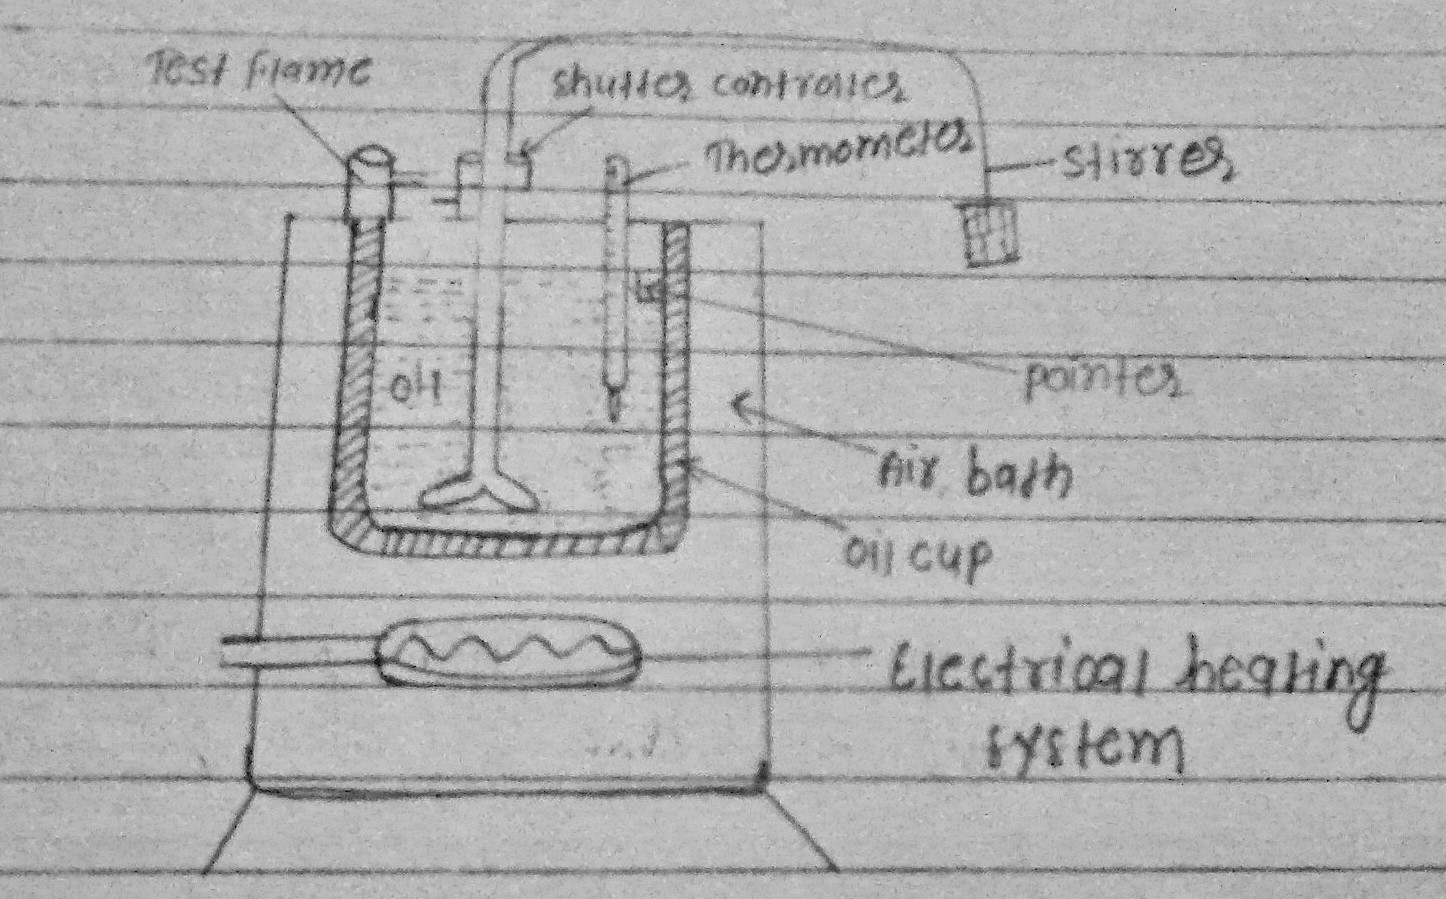 Test flame
shutter controller
Thermometer
stirrer
oil
pointer
Air bath
oil cup
Electrical heating
system